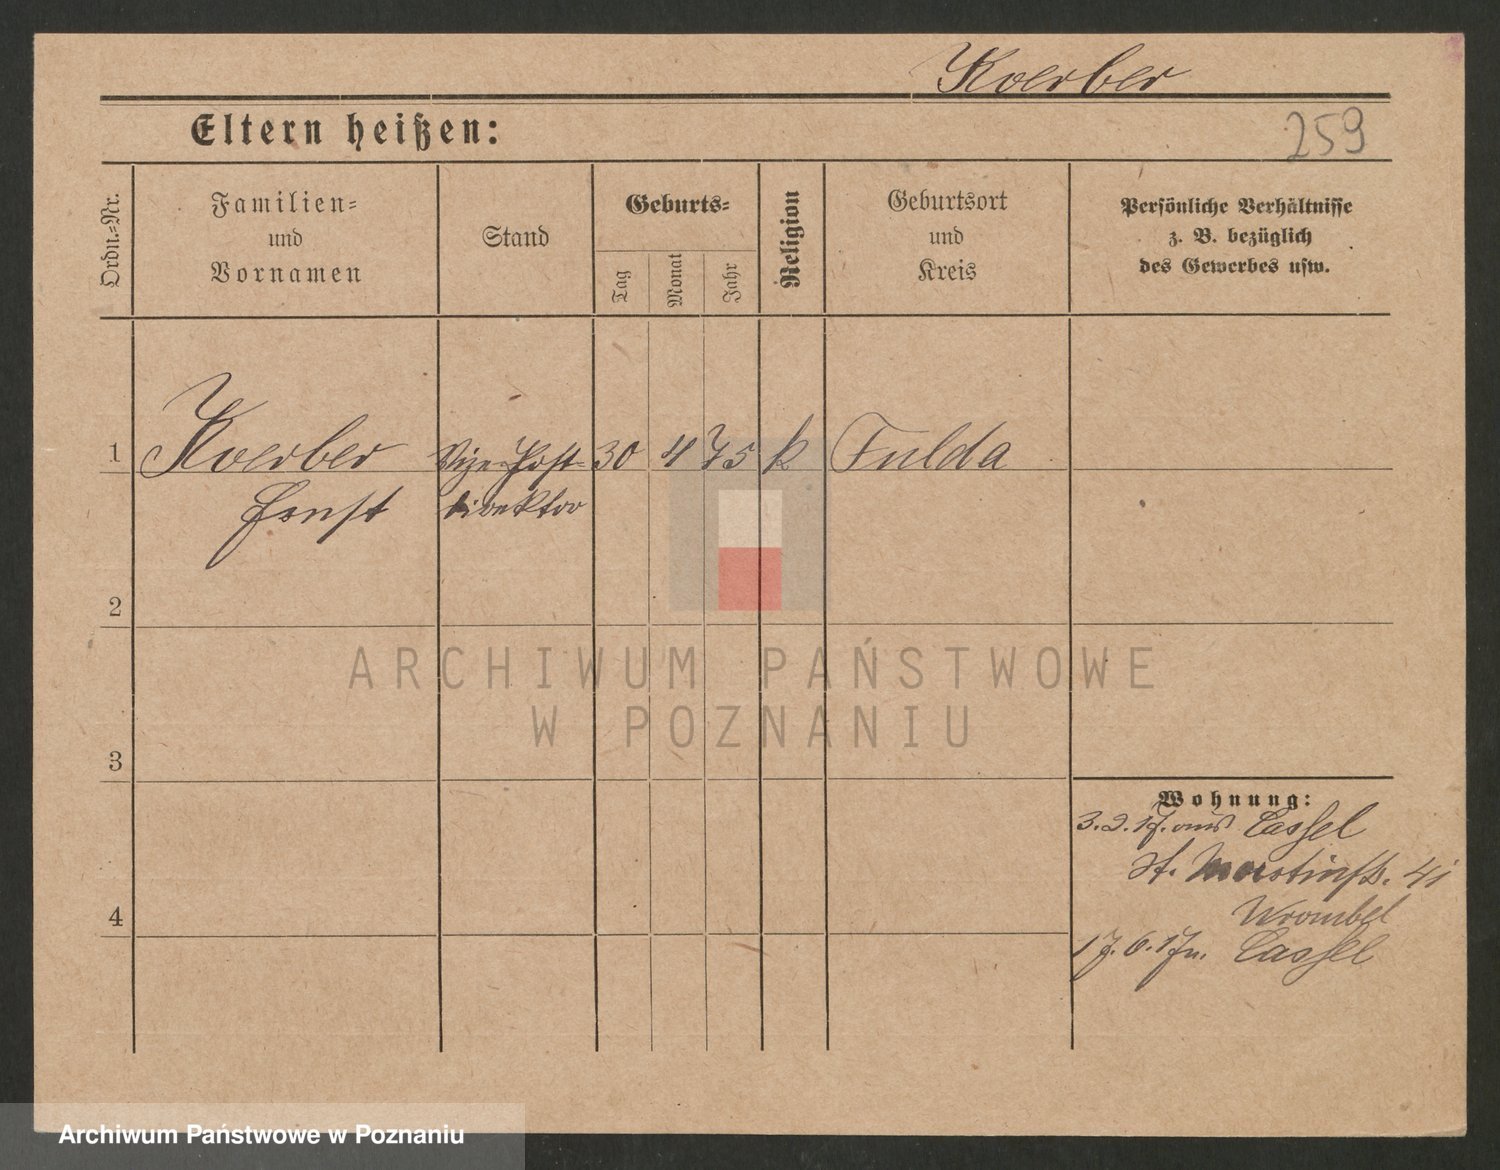 Koerber
Eltern heißen:
259
Ordn.-Nr.
Familien-
und
Vornamen
Stand
Geburts-
Tag
Monat
Jahr
Religion
Geburtsort
und
Kreis
Persönliche Verhältnisse
z. B. bezüglich
des Gewerbes usw.
1 Koerber Vize-Post- 30 4 75 k Fulda
Ernst direktor
2
ARCHIWUM PAŃSTWOWE
W POZNANIU
3
Wohnung:
3.2.17. aus Cassel
St. Martinstr. 41
Wrombel
4
17.6.17 n. Cassel
Archiwum Państwowe w Poznaniu